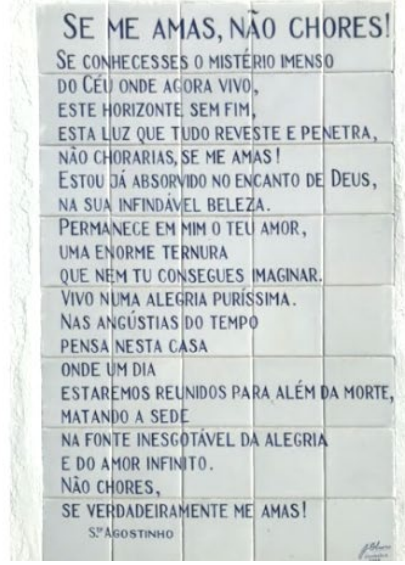 SE ME AMAS, NÃO CHORES!
SE CONHECESSES O MISTÉRIO IMENSO
DO CÉU ONDE AGORA VIVO,
ESTE HORIZONTE SEM FIM,
ESTA LUZ QUE TUDO REVESTE E PENETRA,
NÃO CHORARIAS, SE ME AMAS!
ESTOU JÁ ABSORVIDO NO ENCANTO DE DEUS,
NA SUA INFINDÁVEL BELEZA.
PERMANECE EM MIM O TEU AMOR,
UMA ENORME TERNURA
QUE NEM TU CONSEGUES IMAGINAR.
VIVO NUMA ALEGRIA PURÍSSIMA.
NAS ANGÚSTIAS DO TEMPO
PENSA NESTA CASA
ONDE UM DIA
ESTAREMOS REUNIDOS PARA ALÉM DA MORTE,
MATANDO A SEDE
NA FONTE INESGOTÁVEL DA ALEGRIA
E DO AMOR INFINITO.
NÃO CHORES,
SE VERDADEIRAMENTE ME AMAS!
S.TO AGOSTINHO